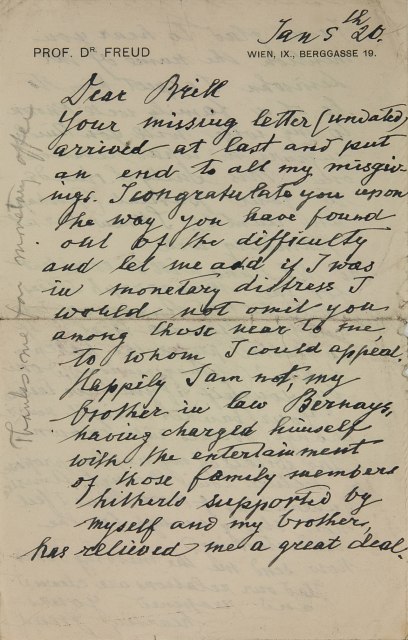 Jan 5th 20.
PROF. DR. FREUD
WIEN, IX., BERGGASSE 19.
Dear Brill
Your missing letter (undated)
arrived at last and put
an end to all my misgiv-
ings. I congratulate you upon
the way you have found
out of the difficulty
and let me add if I was
in monetary distress I
would not omit you
among those near to me,
to whom I could appeal.
Happily I am not, my
brother in law Bernays,
having charged himself
with the entertainment
of those family members
hitherto supported by
myself and my brother,
has relieved me a great deal.
Thanks me for monetary offer